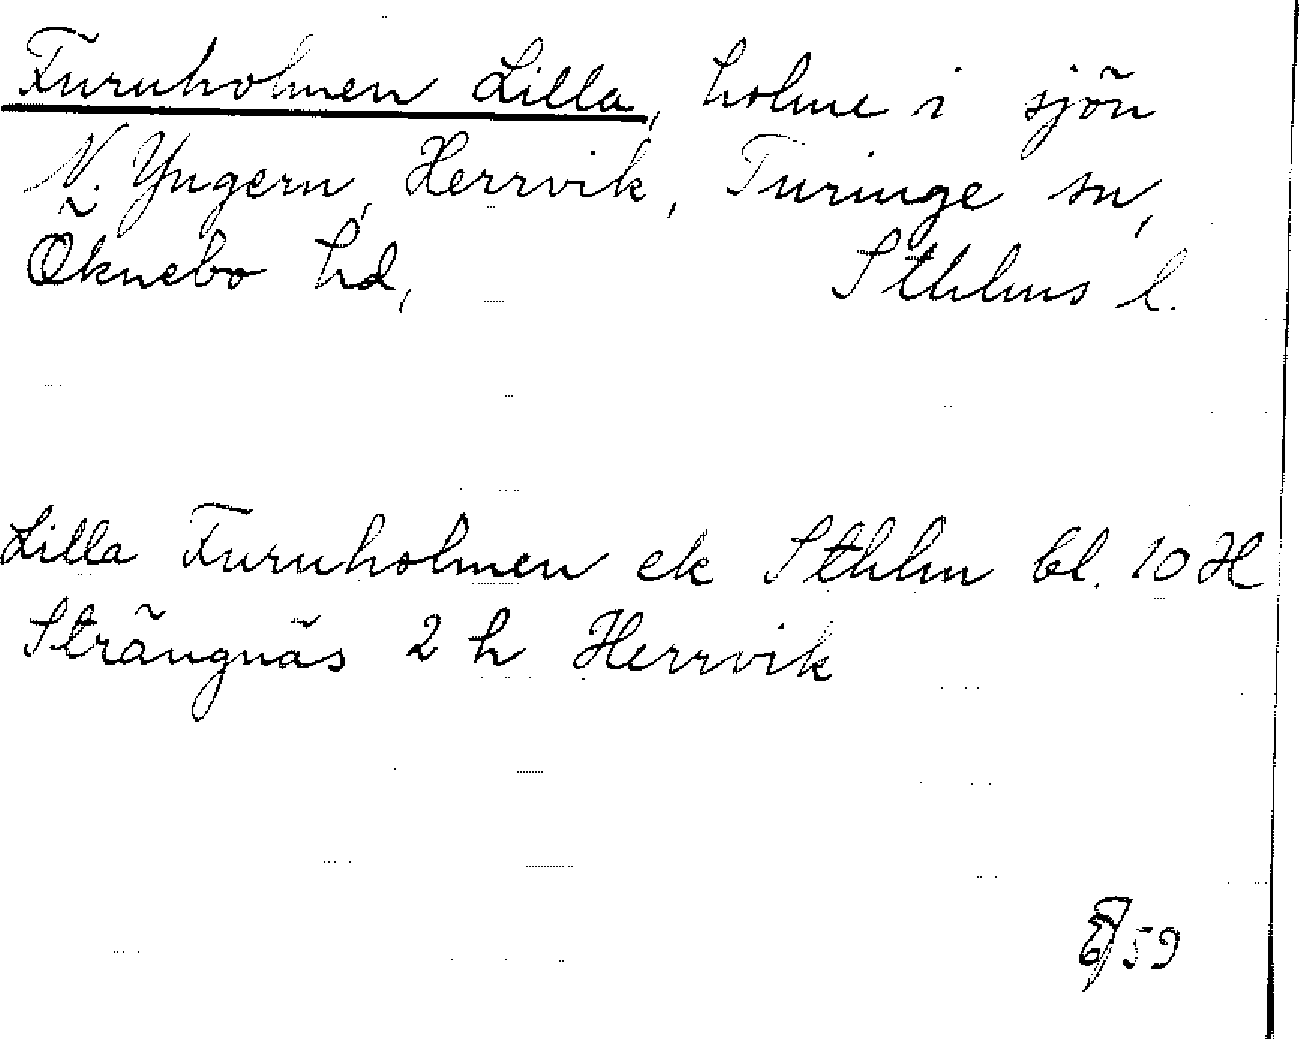 Furuholmen Lilla, holme i sjön
N. Yngern, Herrvik, Turinge sn,
Öknebo hd, Sthlms l.
Lilla Furuholmen ek Sthlm bl. 10 H
Strängnäs 2 h Herrvik
59